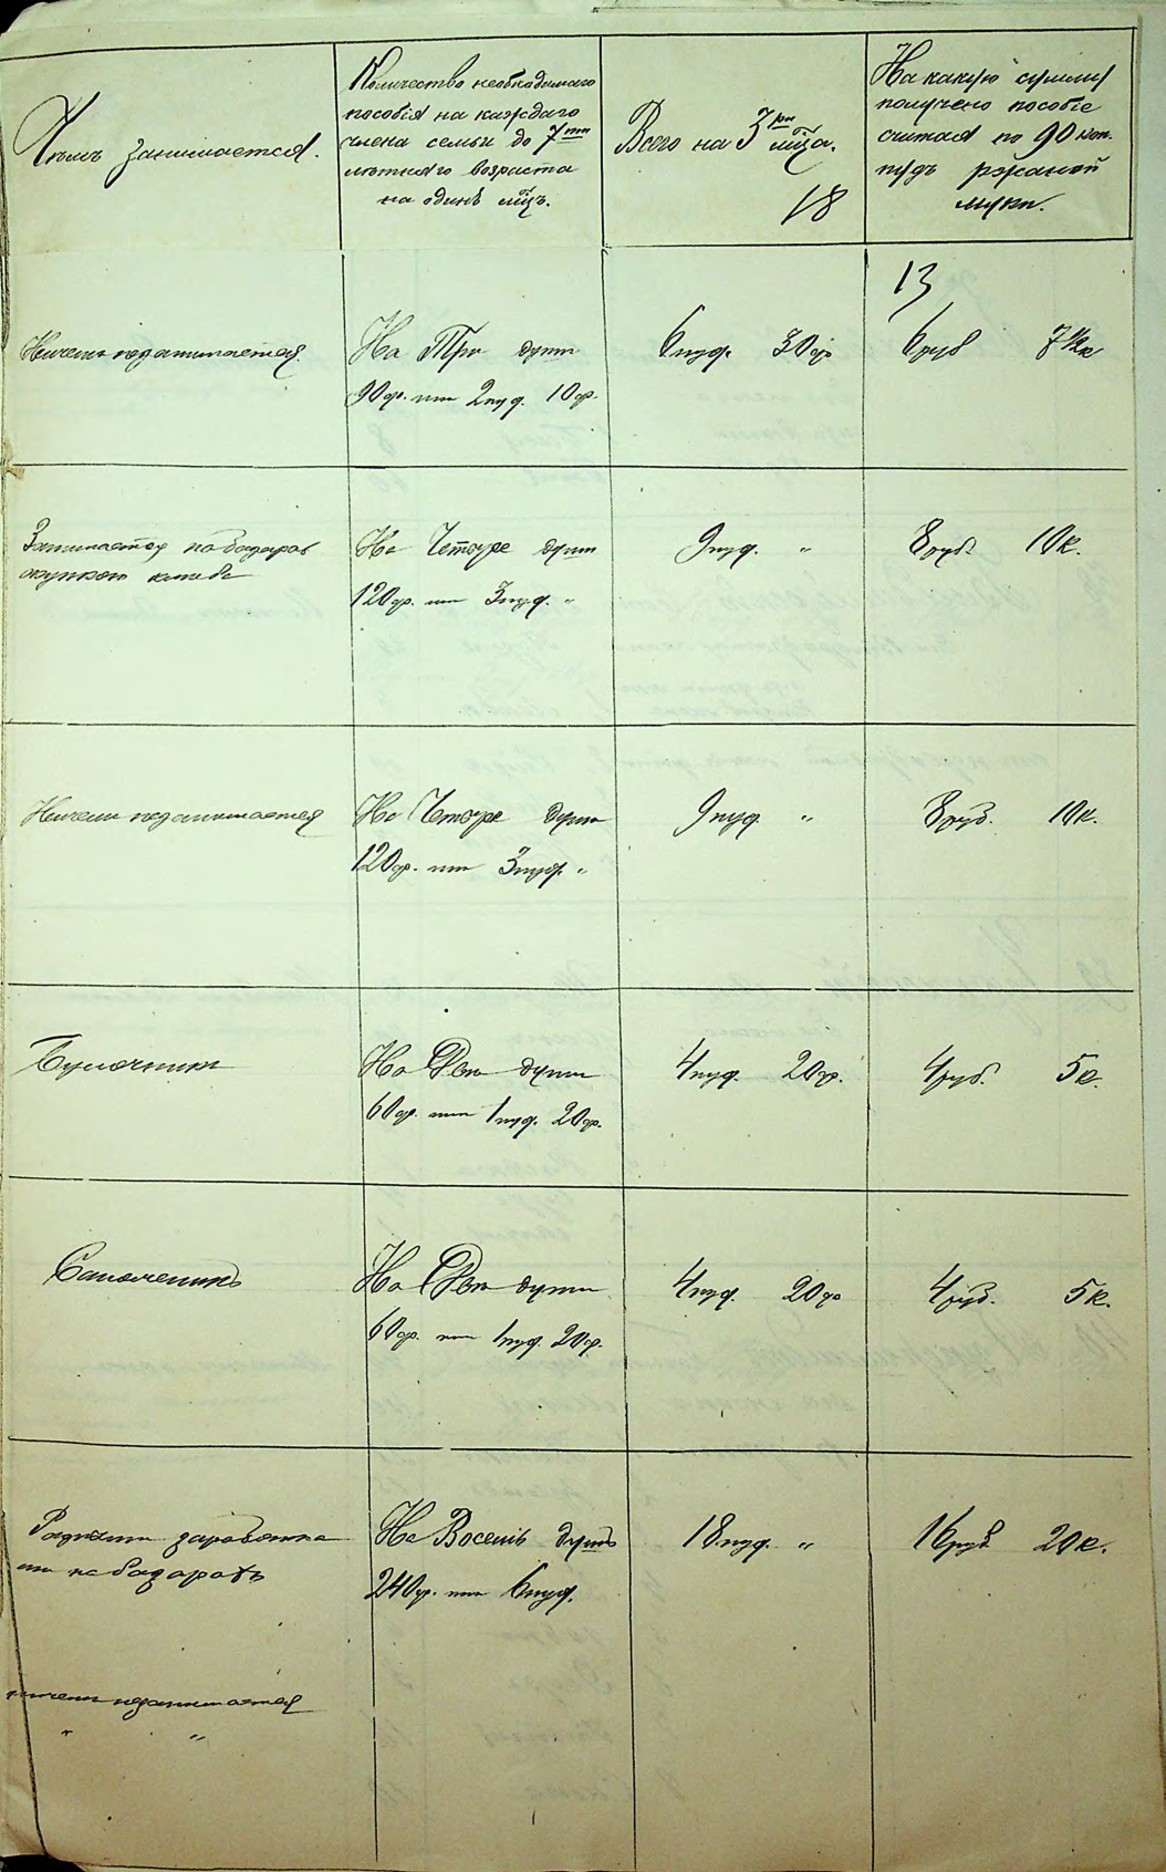 Чѣмъ занимается.
Количество необходимаго
пособія на каждаго
члена семьи до 7ми
лѣтняго возраста
на одинъ мѣц.
Всего на 3ри мѣца.
18
На какую сумму
получено пособіе
считая по 90 коп.
пудъ ржаной
муки.
13
Ничемъ незанимается.
На Три души
90ф. или 2пуд. 10ф.
6пуд. 30ф
6руб 7½к
Занимается по базарам
На Четыре души
120ф. или 3пуд. "
9пуд. "
8руб. 10к.
Ничемъ незанимается
На Четыре души
120ф. или 3пуд. "
9пуд. "
8руб. 10к.
Булочникъ
На Две души
60ф. или 1пуд. 20ф.
4пуд. 20ф.
4руб. 5к.
Сапожникъ
На Две души
60ф. или 1пуд. 20ф.
4пуд. 20ф
4руб. 5к.
заработка
на базарахъ
На Восемь душъ
240ф. или 6пуд.
18пуд. "
16руб 20к.
ничемъ незанимается
" "